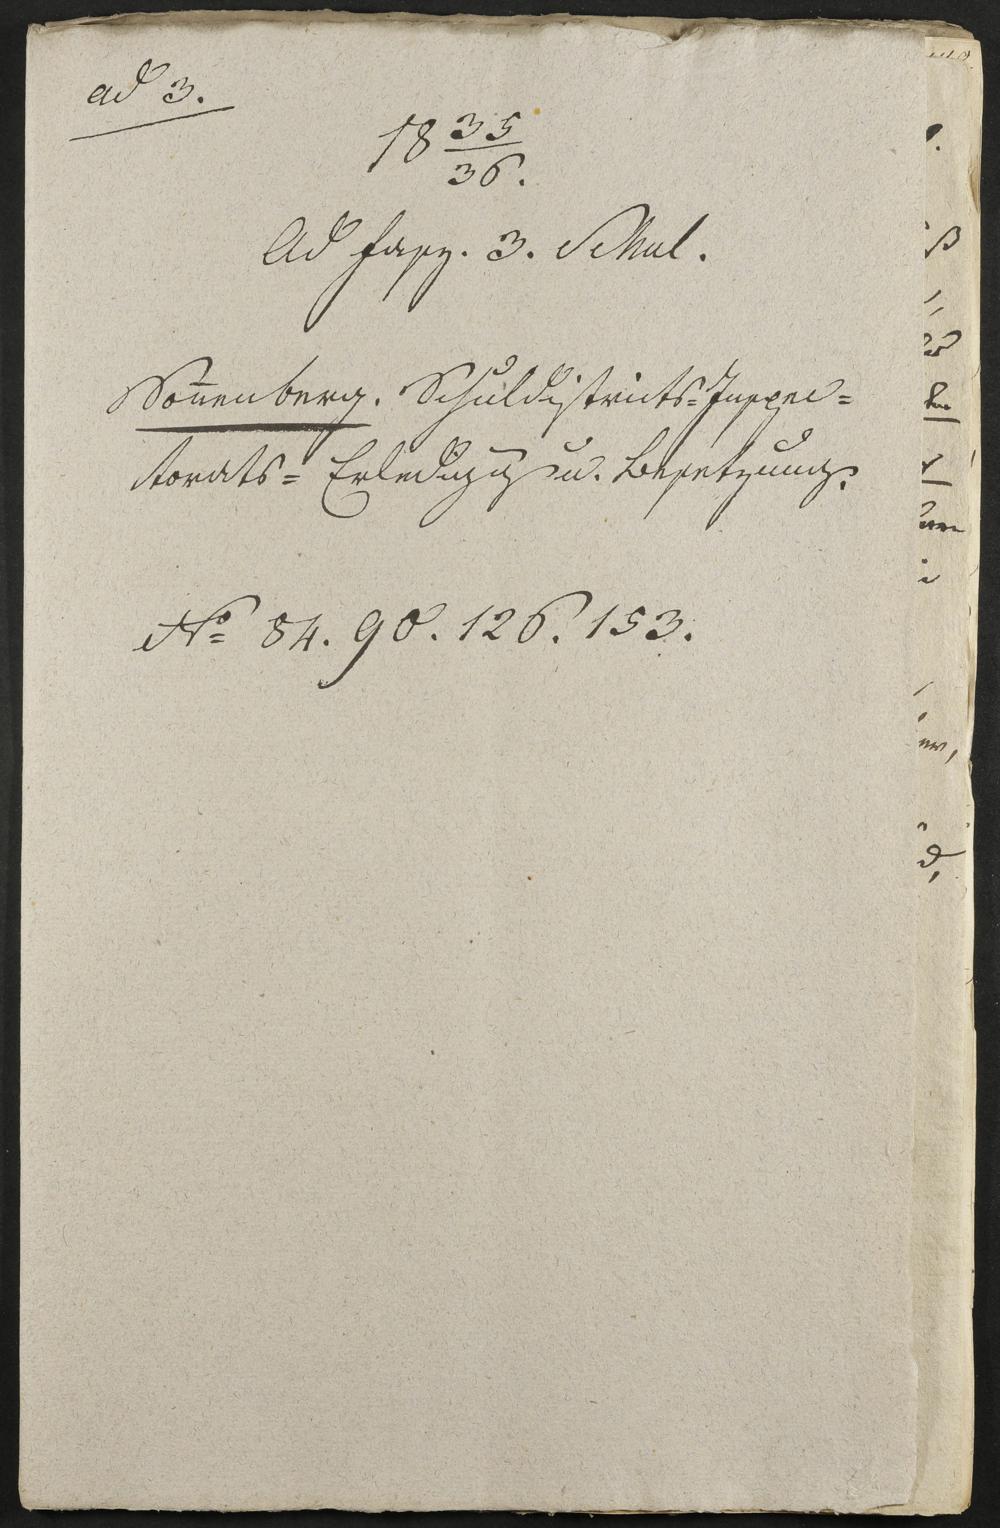 ad 3.
18 35/36.
Ad fasz. 3. Schul.
Son̄enberg. Schuldistricts-Inspec=
torats= Erledigg u. Besetzung.
No 84. 90. 126. 153.